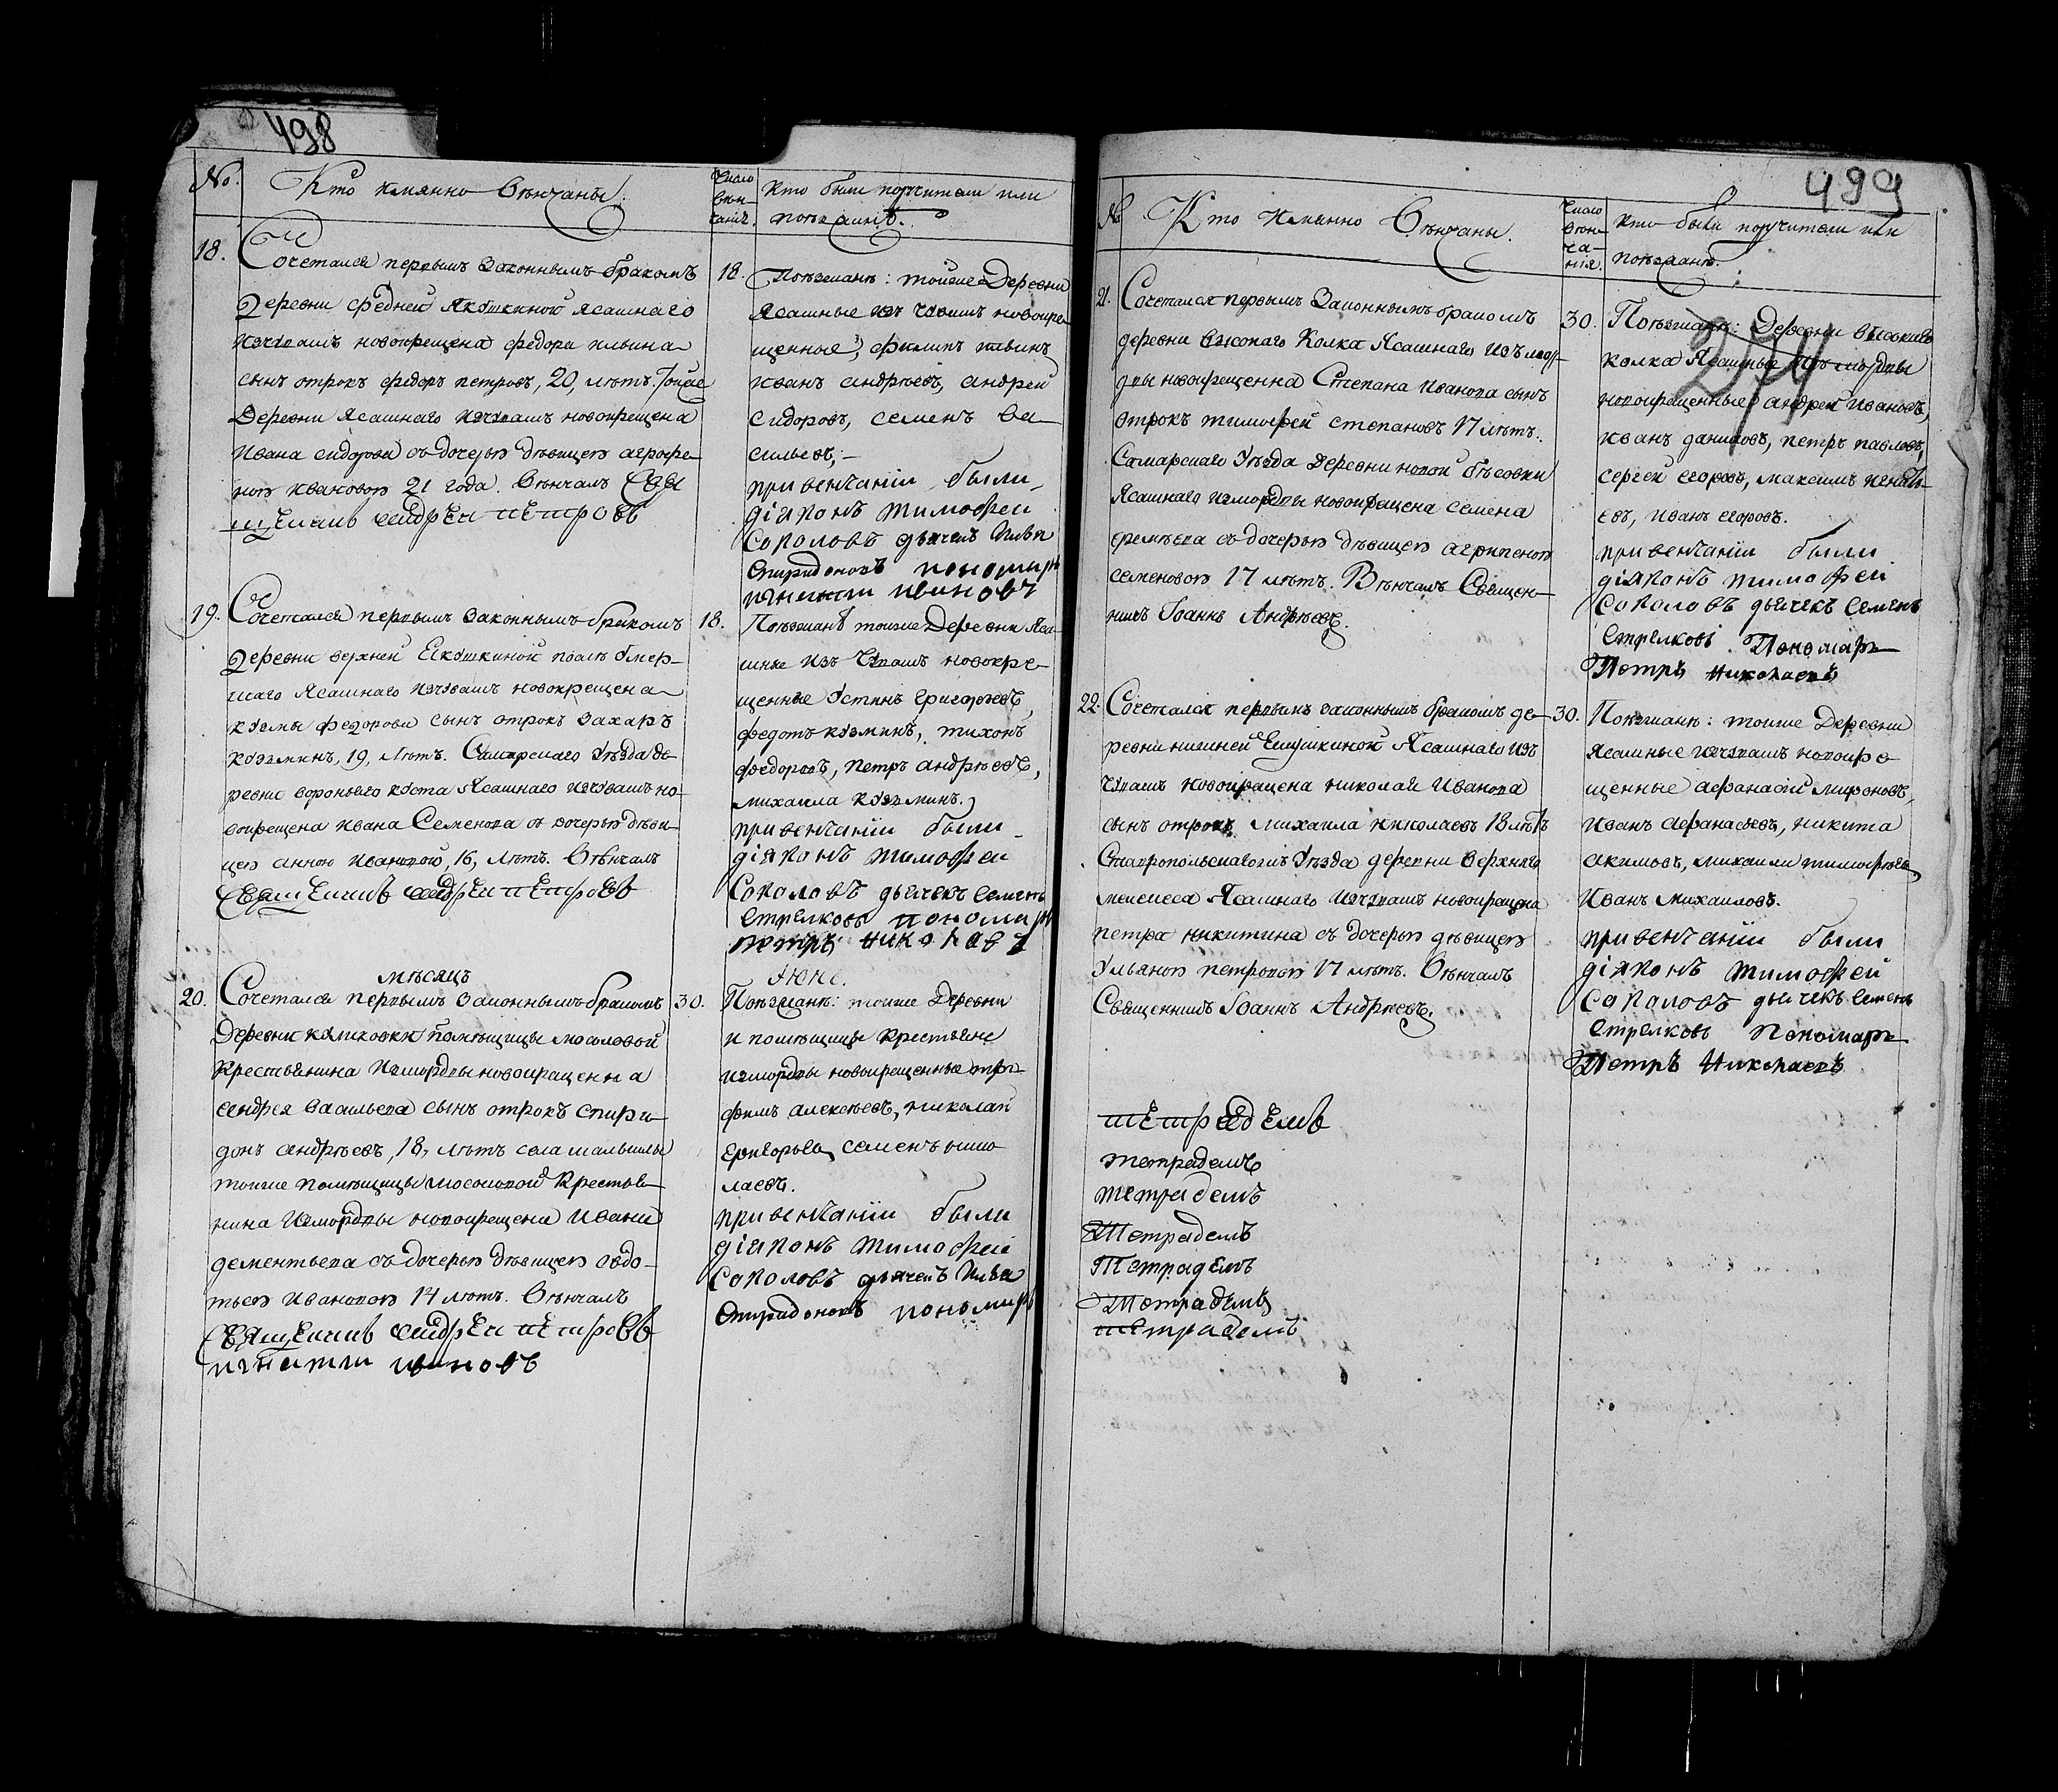 498
№.
Кто имянно Венчаны.
Число
венчания.
Кто были поручители или
поезжанѣ.
18.
Сочетался первымъ Законнымъ бракомъ
Деревни средней Якушкиной ясашнаго
изчувашъ новокрещена федора ильина
сынъ отрокъ федоръ петровъ, 20, лѣтъ. Тойже
Деревни Ясашнаго изчувашъ новокрещена
Ивана сидорова съ дочерью дѣвицею агрофе-
ною ивановою 21 года. Вѣнчалъ Свя
щенник андрей петровъ
18.
Поѣзжанѣ: тойже Деревни
Ясашные изъ чювашъ новокре
щенные, филипъ
иванъ андрѣевъ, андрей
сидоровъ, семенъ ва-
сильевъ,
при венчании были
діяконъ тимофеи
Соколовъ дьячекъ Илья
Спиридоновъ пономарь
игнатии ивановъ
19.
Сочетался первымъ законнымъ бракомъ
Деревни верхней Екушкиной послѣ умер-
шаго Ясашнаго изчувашъ новокрещена
кузмы федорова сынъ отрокъ захаръ
кузминъ, 19, лѣтъ. Самарскаго уѣзда де-
ревни вороньяго куста Ясашнаго изчувашъ но-
вокрещена ивана Семенова съ дочерью дѣви-
цею анною ивановою, 16, лѣтъ. Вѣнчалъ
Священник андрей петровъ
18.
Поѣзжанѣ тойже Деревни Яса-
шные изъ Чувашъ новокре-
щенные устинъ григорьевъ,
федотъ кузминъ, тихонъ
федоровъ, петръ андрѣевъ,
михаила кузминъ.
при венчании были
діяконъ тимофеи
Соколовъ дьячекъ семенъ
стрелковъ пономарь
петръ николаевъ
мѣсяцъ
Июнь.
20.
Сочетался первымъ законнымъ бракомъ
Деревни куликовки помѣщицы мосоловой
Крестьянина Измордвы новокрещенна
андрея васильева сынъ отрокъ спири-
донъ андрѣевъ, 18, лѣтъ села
тоиже помѣщицы мосоловой Крестья-
нина Измордвы новокрещена ивана
дементьева съ дочерью дѣвицею овдо-
тьею ивановою 14 лѣтъ. Вѣнчалъ
Священник андрей петровъ
игнатии ивановъ
30.
Поѣзжанѣ: тоиже Деревни
и помѣщицы Крестьяне
измордвы новокрещенные тро-
фимъ алексѣевъ, николай
григорьевъ, семенъ нико
лаевъ.
при венчании были
діяконъ тимофеи
Соколовъ дьячекъ Илья
Спиридоновъ пономарь
499
№
Кто имянно Вѣнчаны.
Число
вѣнчания.
Кто были поручители или
поѣзжанѣ.
274
21.
Сочетался первымъ Законнымъ бракомъ
деревни высокаго Колка Ясашнаго изъ мор-
двы новокрещенна Степана иванова сынъ
отрокъ тимофей степановъ 17 лѣтъ.
Самарскаго уѣзда деревни новой бѣсовки
Ясашнаго измордвы новокрещена семена
еремѣева съ дочерью дѣвицею агрипеною
семеновою 17 лѣтъ. Вѣнчалъ Священ-
никъ Іоаннъ Андрѣевъ.
30.
Поѣзжанѣ: Деревни высокаго
колка Ясашные изъ мордвы
новокрещенные андрей ивановъ,
иванъ даниловъ, петръ павловъ,
сергей егоровъ, максимъ игнать-
евъ, иванъ егоровъ.
при венчании были
діяконъ тимофеи
Соколовъ дьячекъ Семенъ
Стрелковъ Пономарь
Петръ Николаевъ
22.
Сочетался первымъ законнымъ бракомъ де-
ревни нижней Екушкиной Ясашнаго изъ
чувашъ новокрещена николая иванова
сынъ отрокъ михаила николаевъ 18 лѣтъ
Ставропольскагожъ уѣзда деревни верхняго
мелекеса Ясашнаго изчувашъ новокрещена
петра никитина съ дочерью дѣвицею
ульяною петровою 17 лѣтъ. Вѣнчалъ
Священникъ Іоаннъ Андрѣевъ.
30.
Поѣзжанѣ: тоиже Деревни
ясашные изчувашъ новокре-
щенные афанасий мироновъ,
иванъ афанасьевъ, никита
акимовъ, михаила тимофѣевъ
Иванъ михаиловъ.
при венчании были
діяконъ тимофеи
Соколовъ дьячекъ Семенъ
стрелковъ Пономарь
Петръ Николаевъ
тетраделъ
тетраделъ
тетраделъ
Тетраделъ
Тетраделъ
Тетраделъ
тетраделъ